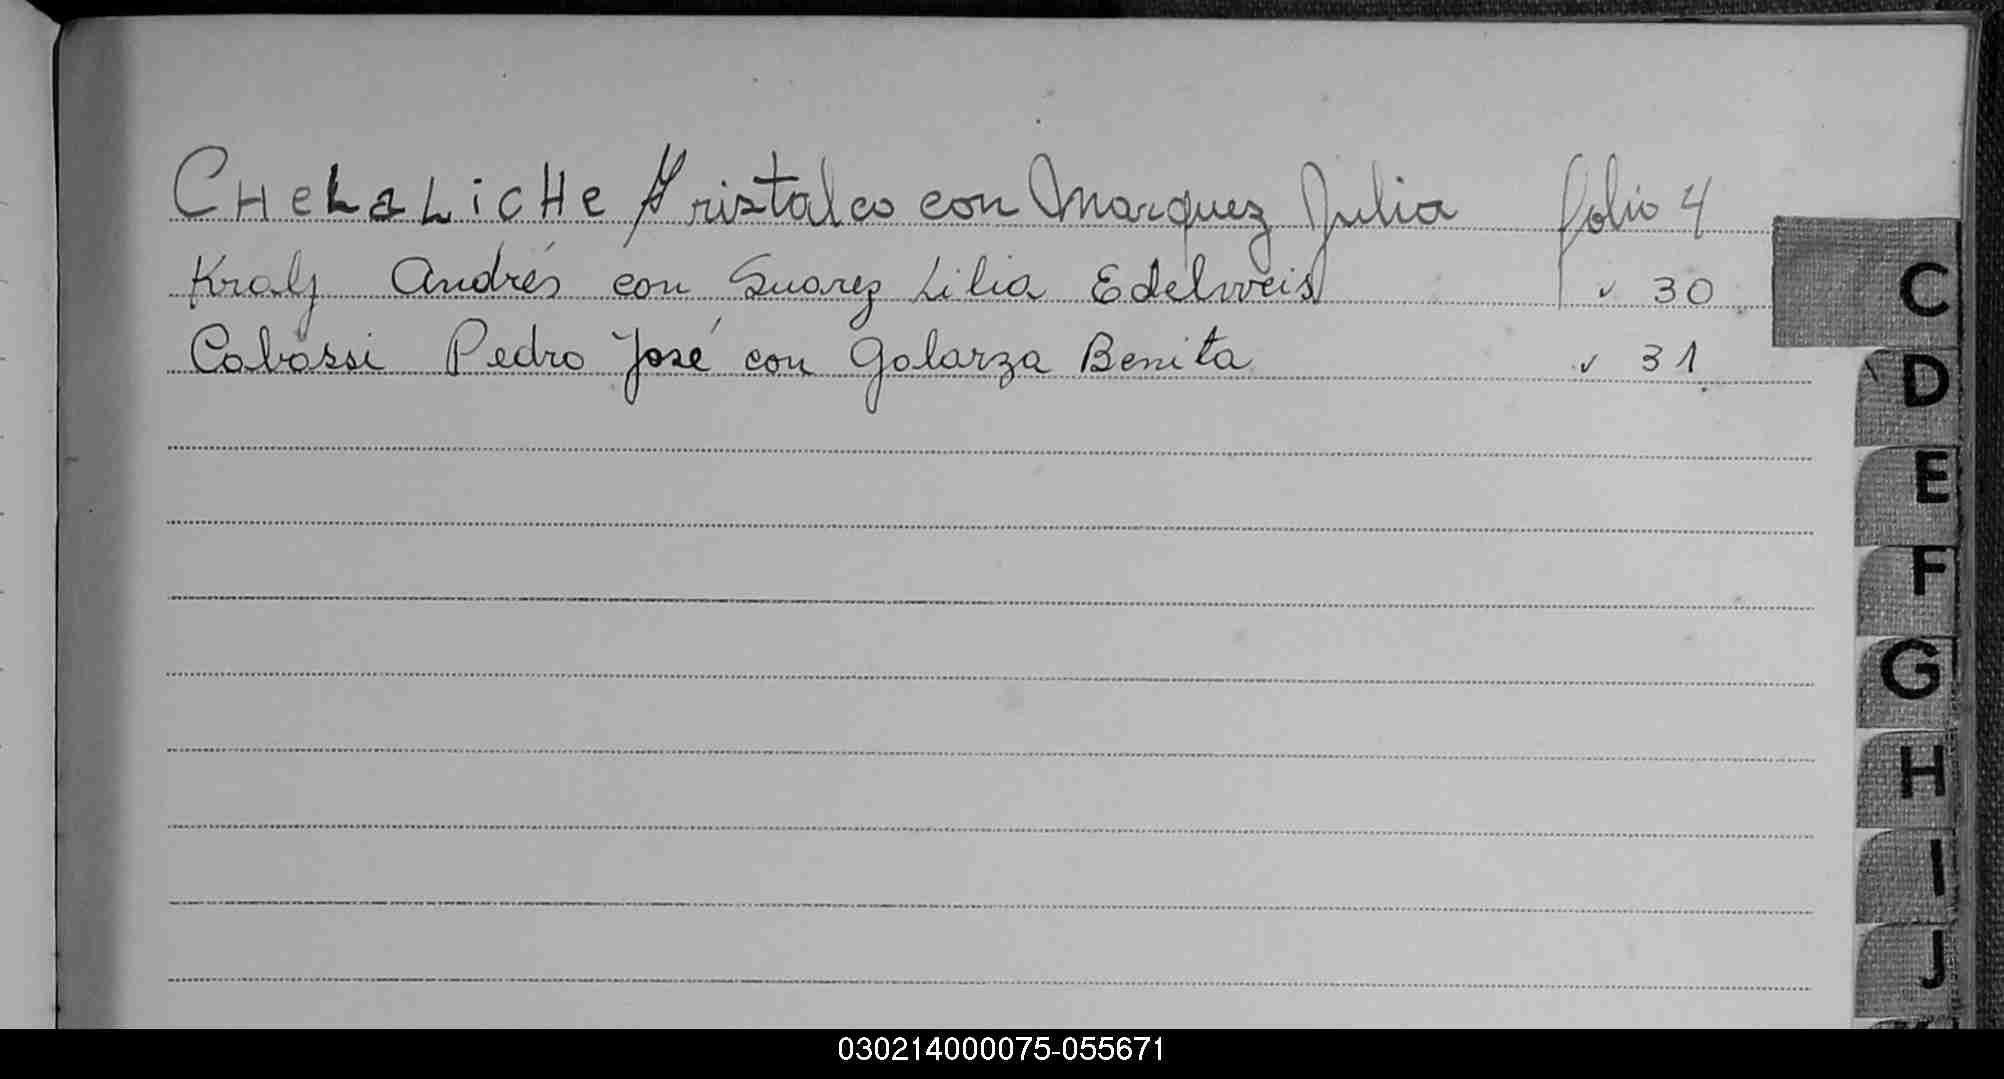 CHeLaLicHe Aristalco con Marquez Julia folio 4
Kralj Andrés con Suarez Lilia Edelweis " 30
Cabassi Pedro José con Galarza Benita " 31
C
D
E
F
G
H
I
J
030214000075-055671